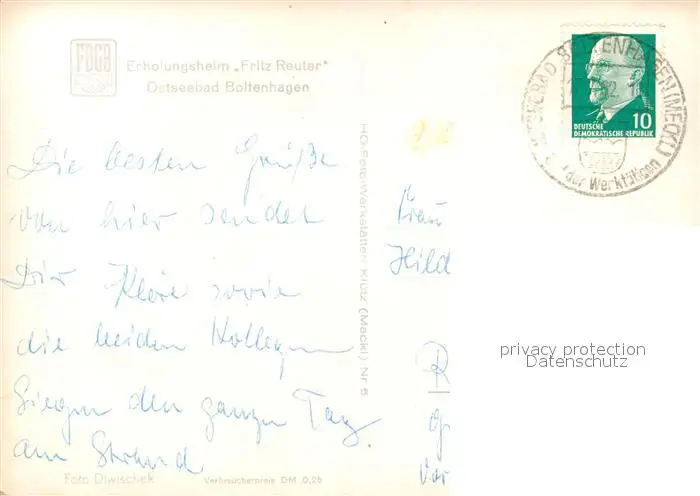 FDGB
Erholungsheim „Fritz Reuter"
Ostseebad Boltenhagen
Die besten Grüße
von hier sendet
Dir Klöre sowie
die beiden Kollegen
Siegen den ganzen Tag
am Strand
Foto Diwischek Verbraucherpreis DM 0,25
HO-Foto-Werkstätten Krütz (Meckl) Nr 6
OSTSEEBAD BOLTENHAGEN (MECKL)
der Werktätigen
10
DEUTSCHE
DEMOKRATISCHE REPUBLIK
Frau
Hild
R
privacy protection
Datenschutz